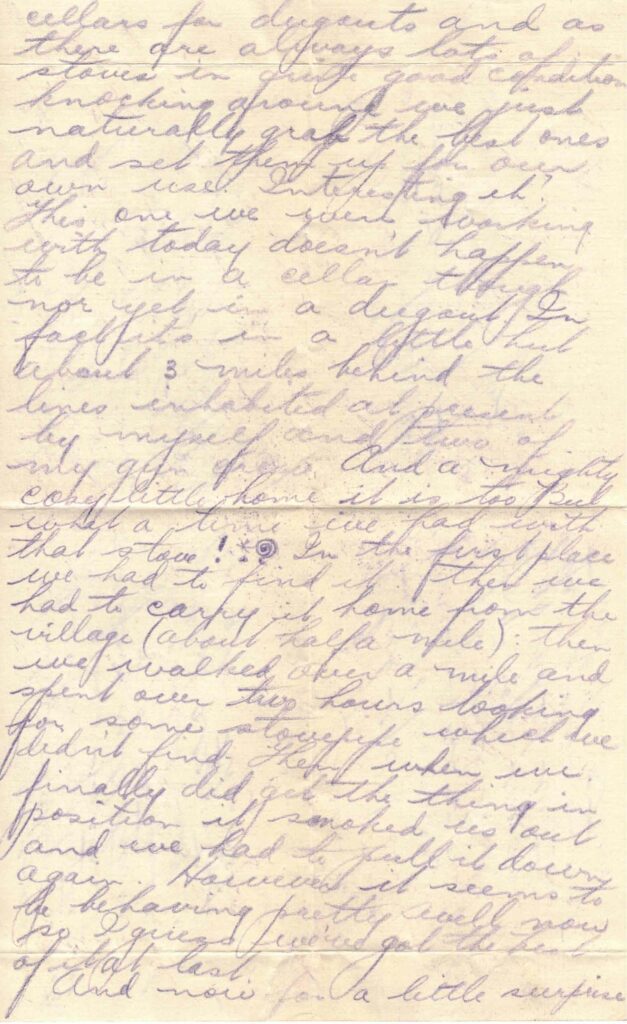 cellars for dugouts and as
there are always lots of
stoves in quite good condition
knocking around we just
naturally grab the best ones
and set them up for our
own use. Interesting eh?
This one we were working
with today doesn't happen
to be in a cellar though
nor yet in a dugout In
fact its in a little hut
about 3 miles behind the
lines inhabited at present
by myself and two of
my gun crew. And a mighty
cosy little home it is too But
what a time we had with
that stove ! In the first place
we had to find it then we
had to carry it home from the
village (about half a mile) then
we walked over a mile and
spent over two hours looking
for some stovepipe which we
didn't find. Then when we
finally did get the thing in
position it smoked us out
and we had to pull it down
again. However it seems to
be behaving pretty well now
so I guess we've got the best
of it at last
And now for a little surprise